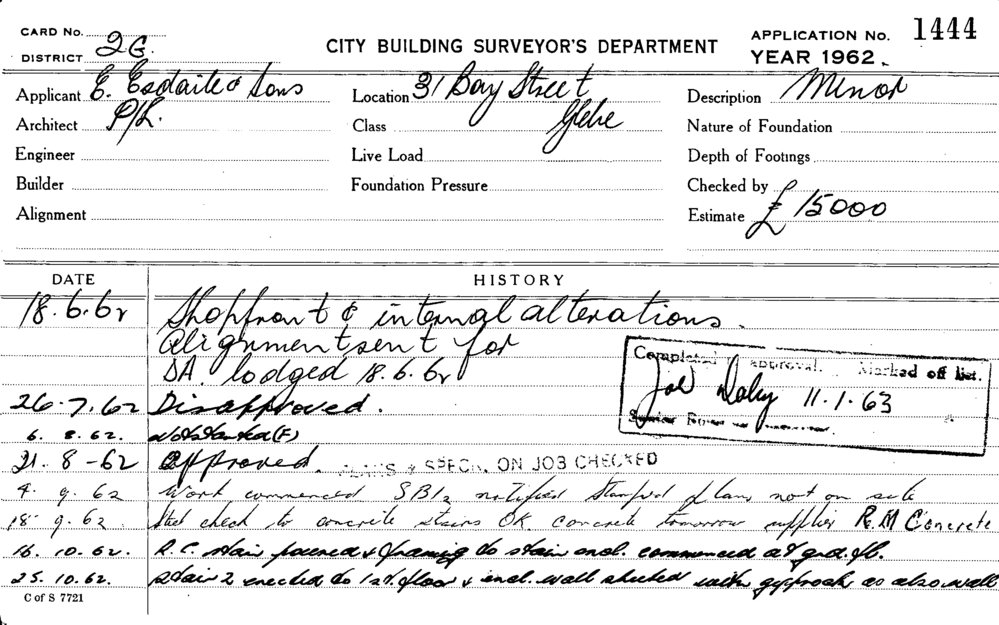 CARD No.
DISTRICT 2G.
CITY BUILDING SURVEYOR'S DEPARTMENT
APPLICATION No. 1444
YEAR 1962.
Applicant E. Esdaile & Sons
P/L.
Location 31 Bay Street
Glebe
Description Minor
Architect
Class
Nature of Foundation
Engineer
Live Load
Depth of Footings
Builder
Foundation Pressure
Checked by
Alignment
Estimate £ 15000
DATE HISTORY
18.6.62 Shopfront & internal alterations.
Alignment sent for
DA. lodged 18.6.62
Completed approval. Marked off list.
Daley 11.1.63
Senior
26.7.62 Disapproved.
6. 8.62. Not started (F)
21.8-62 Approved. PLANS & SPECN. ON JOB CHECKED
4. 9. 62 Work commenced SB12 notified Stamped plans not on site
18. 9. 62 Steel check to concrete stairs OK. concrete tomorrow supplier R.M Concrete
16. 10.62. R.C. stair poured & framing to stair encl. commenced at grd. fl.
25. 10.62. Stair 2 erected to 1st floor & encl. wall sheeted with gyprock as also wall
C of S 7721